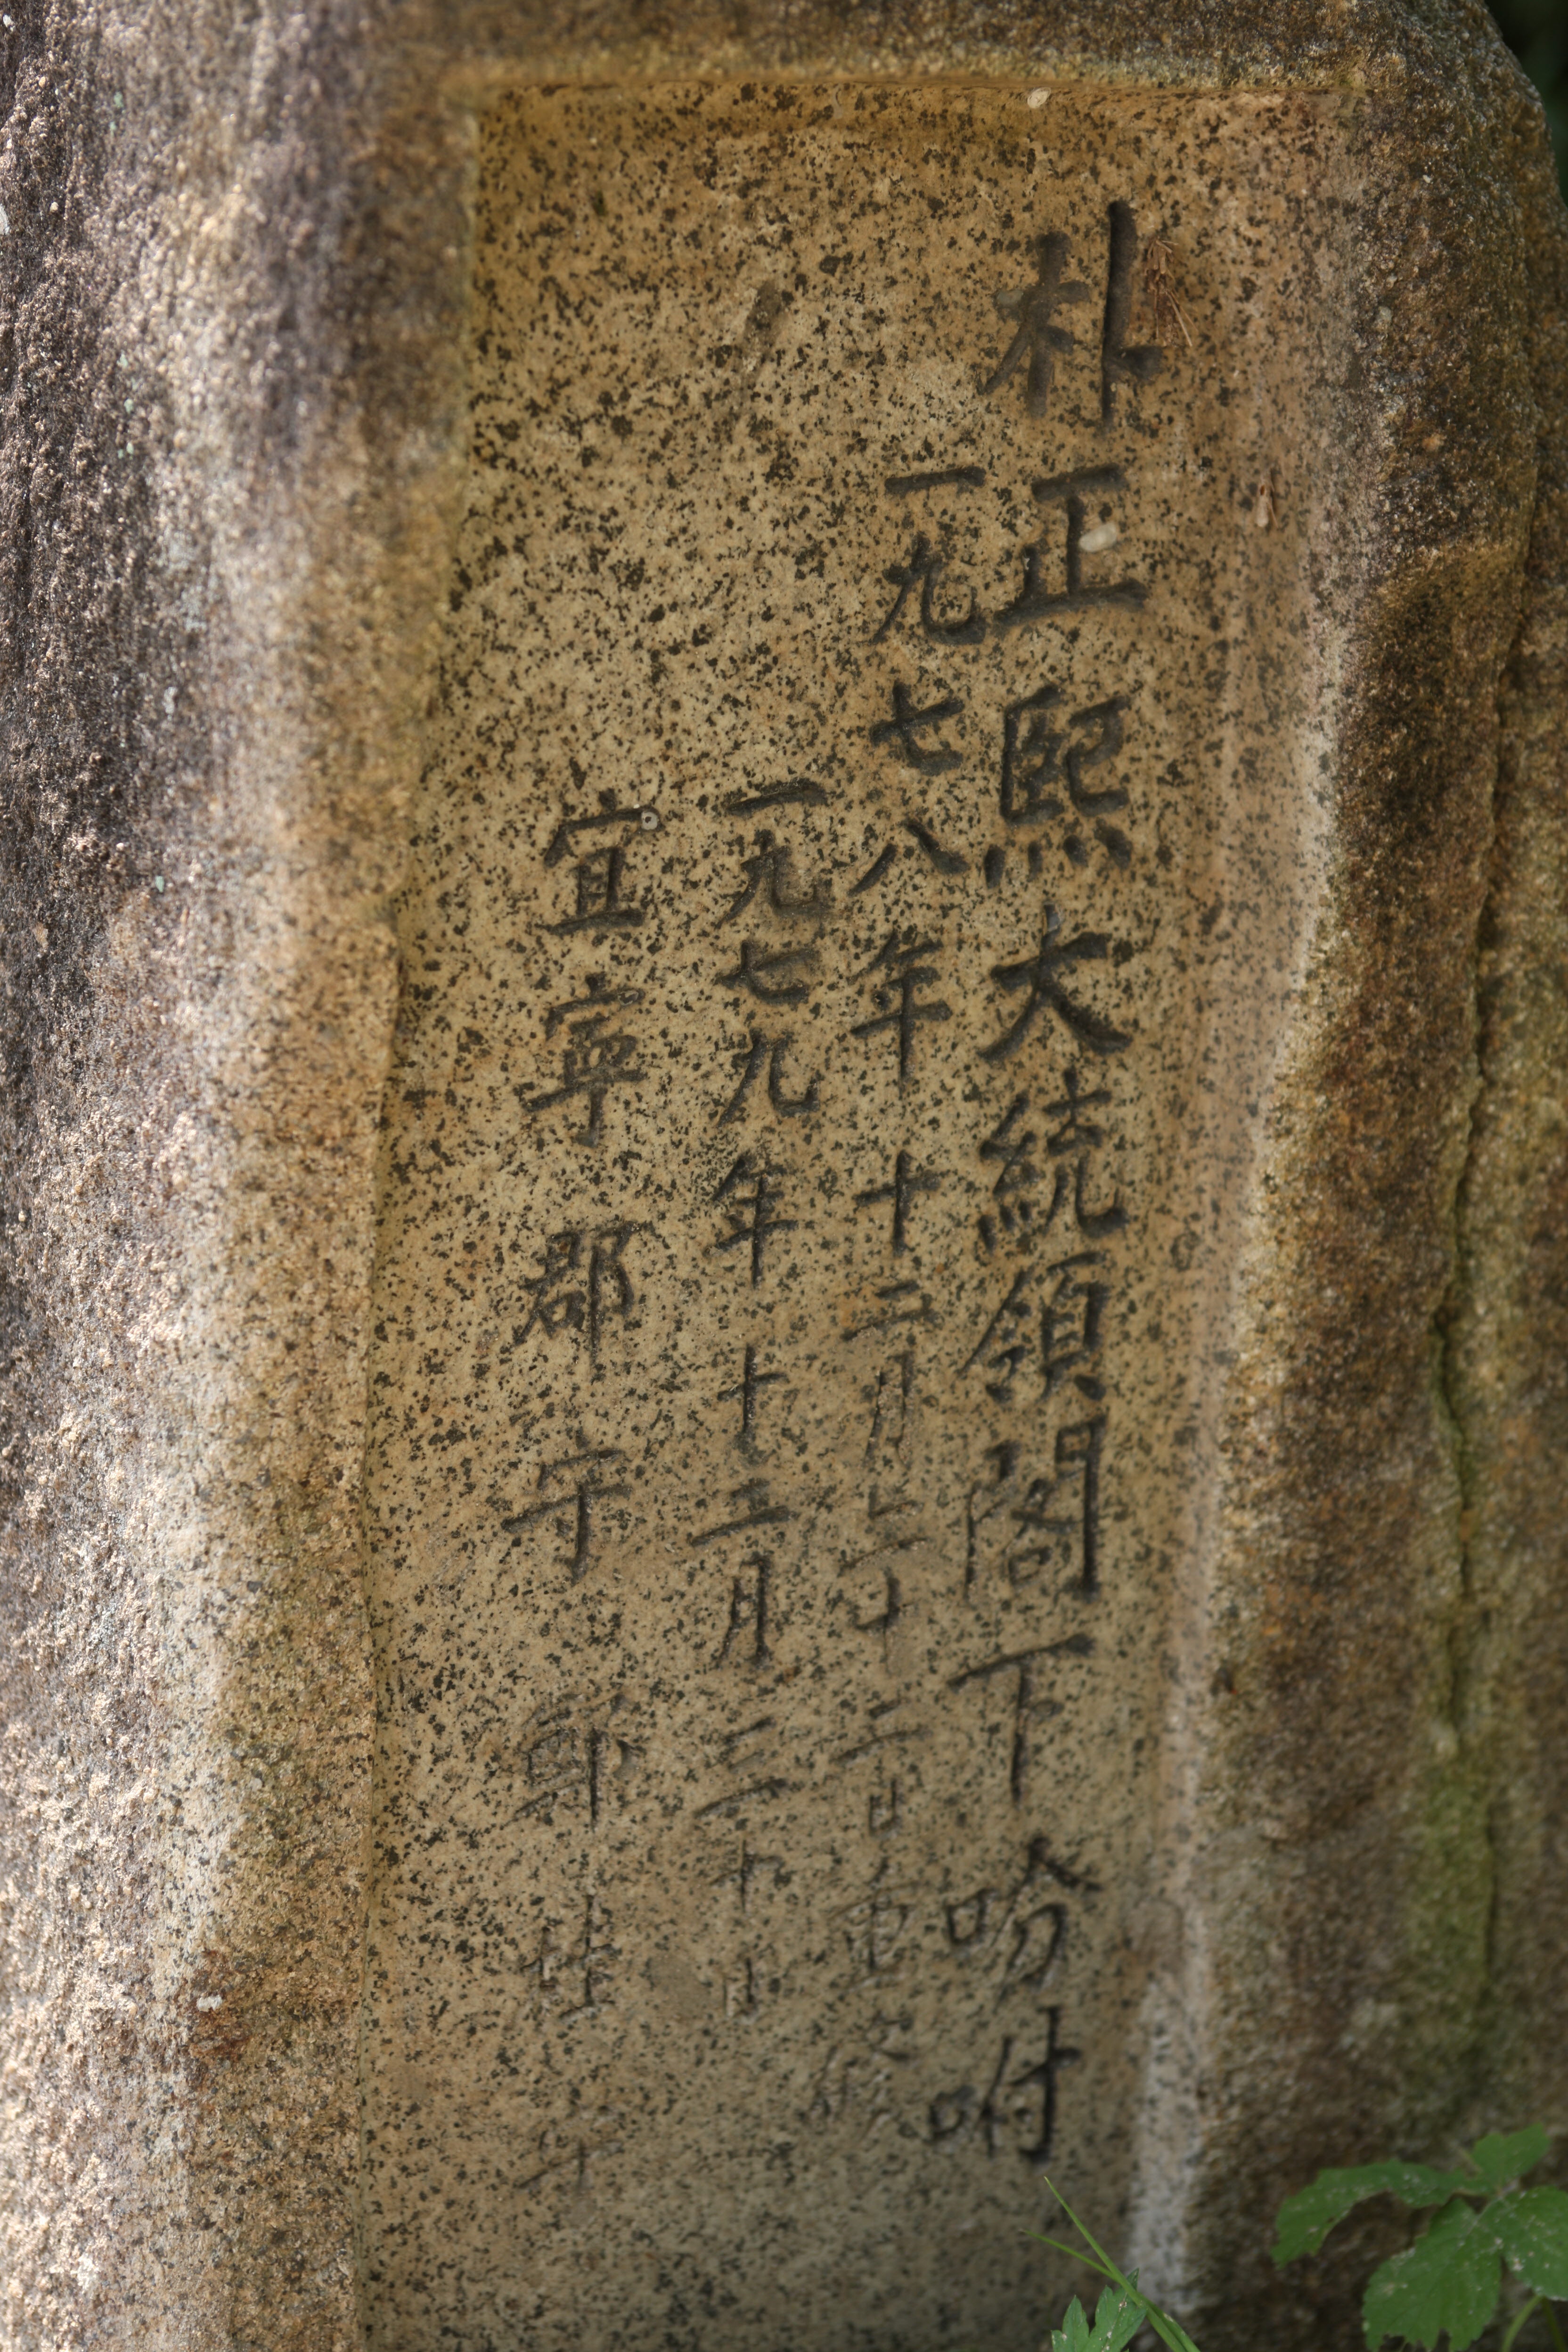 朴正熙大統領閣下吩咐
一九七八年十二月二十二日
一九七九年十二月三十日
宜寧郡守鄭